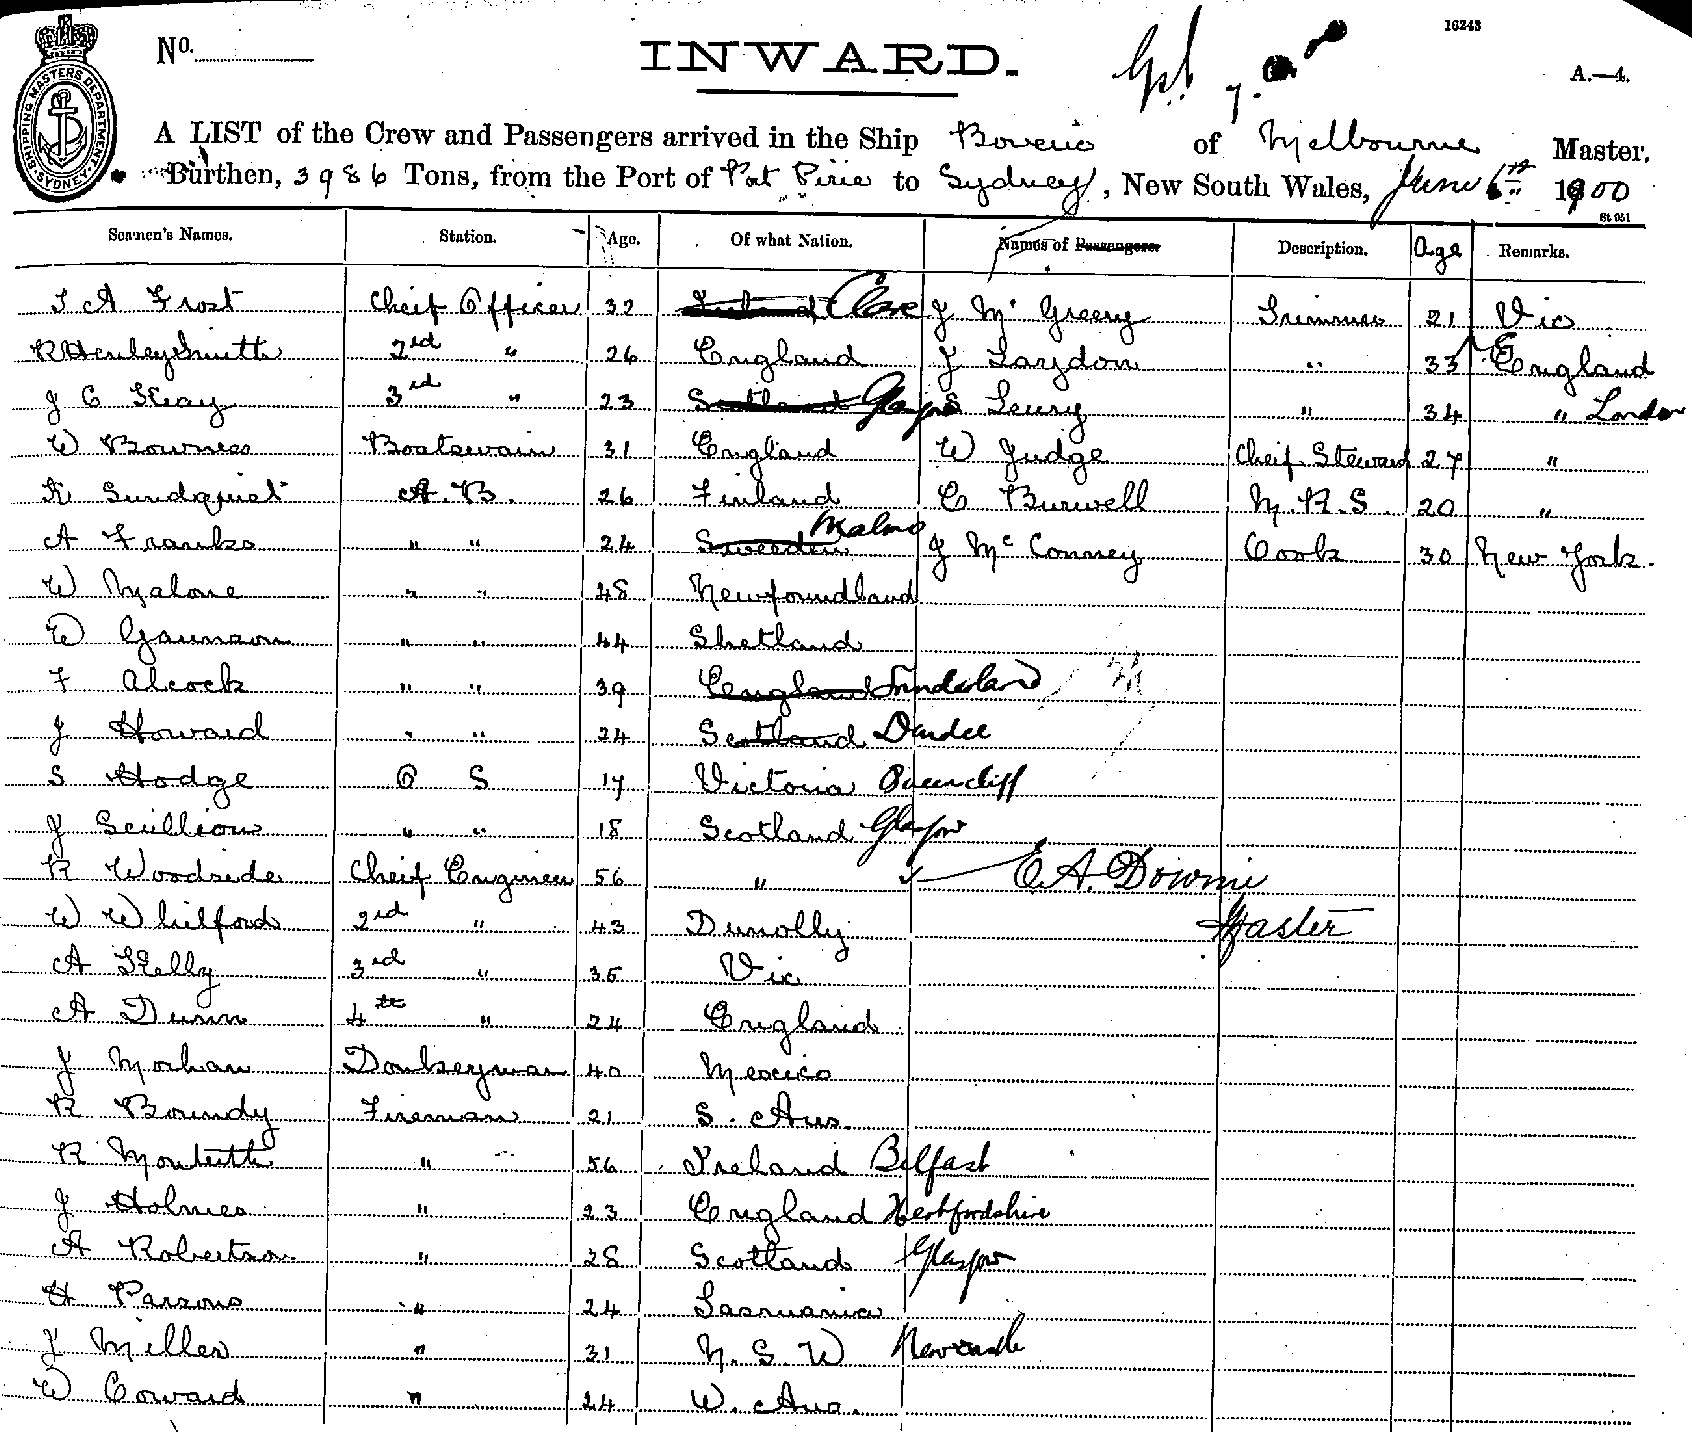 16243
No.
INWARD.
A.—4.
SHIPPING MASTERS DEPARTMENT SYDNEY
A LIST of the Crew and Passengers arrived in the Ship Boveric of Melbourne Master,
Burthen, 3986 Tons, from the Port of Port Pirie to Sydney, New South Wales, June 6th 1900
St 051
Seamen's Names. Station. Age. Of what Nation. Names of Passengers Description. Age Remarks.
T A Frost Cheif Officer 32 Ireland Clare J McGreery Trimmer 21 Vic
R Henley Smith 2nd " 26 England J Laydon " 33 England
J C Keay 3rd " 23 Scotland Glasgow S Leury " 34 " London
W Bowness Boatswain 31 England W Judge Cheif Steward 27 "
A Sundquist A.B. 26 Finland C Burwell M.R.S. 20 "
A Franks " " 24 Sweeden Malmo J McConney Cook 30 New York.
W Malone " " 48 Newfoundland
W Gaunson " " 44 Shetland
F Alcock " " 39 England Sunderland
J Howard " " 24 Scotland Dundee
S Hodge O S 17 Victoria Queencliff
J Scullion " " 18 Scotland Glasgow
R Woodside Cheif Engineer 56 " E.A. Downie
W Whilford 2nd " 43 Dunolly Master
A Kelly 3rd " 35 Vic
A Dunn 4th " 24 England
J Morhan Donkeyman 40 Mexico
R Boundy Fireman 21 S. Aus.
R Monteith " 56 Ireland Belfast
J Holmes " 23 England Hertfordshire
A Robertson " 28 Scotland Glasgow
H Parsons " 24 Tasmania
J Miller " 31 N.S.W Newcastle
W Coward " 24 W. Aus.